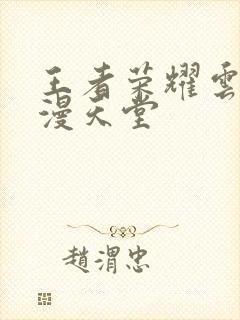 王者荣耀雲
漫天堂
趙渭忠